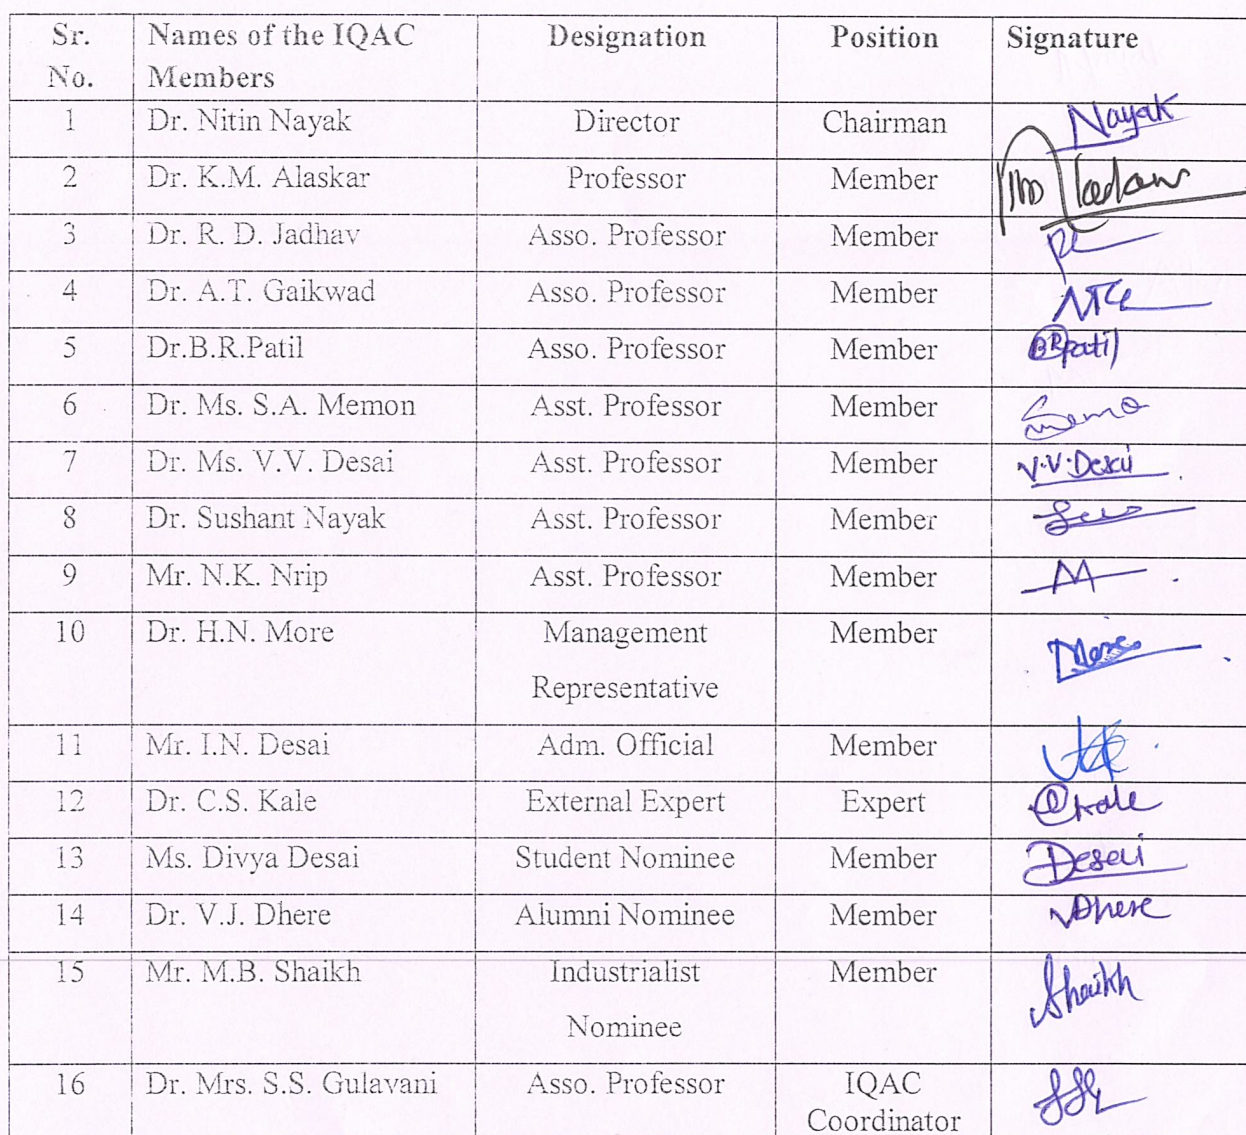 Sr. Names of the IQAC Designation Position Signature
No. Members
1 Dr. Nitin Nayak Director Chairman Nayak
2 Dr. K.M. Alaskar Professor Member
3 Dr. R. D. Jadhav Asso. Professor Member
4 Dr. A.T. Gaikwad Asso. Professor Member
5 Dr.B.R.Patil Asso. Professor Member BRpatil
6 Dr. Ms. S.A. Memon Asst. Professor Member
7 Dr. Ms. V.V. Desai Asst. Professor Member V.V.Desai
8 Dr. Sushant Nayak Asst. Professor Member
9 Mr. N.K. Nrip Asst. Professor Member
10 Dr. H.N. More Management Member More
Representative
11 Mr. I.N. Desai Adm. Official Member
12 Dr. C.S. Kale External Expert Expert
13 Ms. Divya Desai Student Nominee Member Desai
14 Dr. V.J. Dhere Alumni Nominee Member VDhere
15 Mr. M.B. Shaikh Industrialist Member Shaikh
Nominee
16 Dr. Mrs. S.S. Gulavani Asso. Professor IQAC
Coordinator